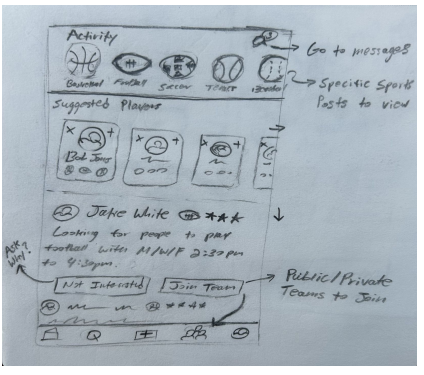 Activity
Go to messages
Basketball Football Soccer Tennis Baseball
Specific Sports
Posts to view
Suggested Players
x +
x +
x +
Bob Jones
Jake White ***
Looking for people to play
football with M/W/F 2:30pm
to 4:30pm.
Ask
Why?
Not Interested Join Team
Public/Private
Teams to Join
****